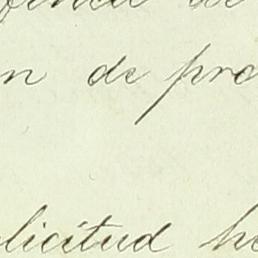 de
n de pro
licitud he